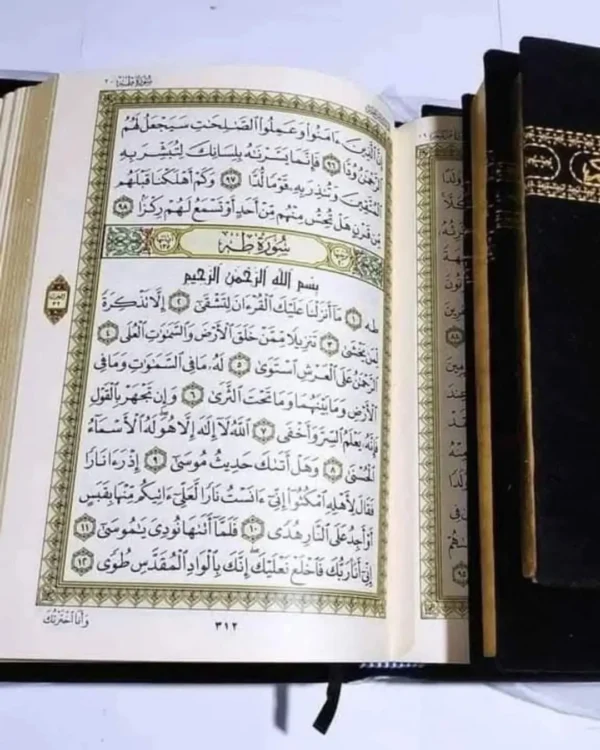 سُورَةُ طه ٢٠
إِنَّ ٱلَّذِينَ ءَامَنُوا۟ وَعَمِلُوا۟ ٱلصَّٰلِحَٰتِ سَيَجْعَلُ لَهُمُ
ٱلرَّحْمَٰنُ وُدًّا ٩٦ فَإِنَّمَا يَسَّرْنَٰهُ بِلِسَانِكَ لِتُبَشِّرَ بِهِ
ٱلْمُتَّقِينَ وَتُنذِرَ بِهِۦ قَوْمًا لُّدًّا ٩٧ وَكَمْ أَهْلَكْنَا قَبْلَهُم
مِّن قَرْنٍ هَلْ تُحِسُّ مِنْهُم مِّنْ أَحَدٍ أَوْ تَسْمَعُ لَهُمْ رِكْزًۢا ٩٨
سُورَةُ طه
بِسْمِ ٱللَّهِ ٱلرَّحْمَٰنِ ٱلرَّحِيمِ
طه ١ مَآ أَنزَلْنَا عَلَيْكَ ٱلْقُرْءَانَ لِتَشْقَىٰٓ ٢ إِلَّا تَذْكِرَةً
لِّمَن يَخْشَىٰ ٣ تَنزِيلًا مِّمَّنْ خَلَقَ ٱلْأَرْضَ وَٱلسَّمَٰوَٰتِ ٱلْعُلَى ٤
ٱلرَّحْمَٰنُ عَلَى ٱلْعَرْشِ ٱسْتَوَىٰ ٥ لَهُۥ مَا فِى ٱلسَّمَٰوَٰتِ وَمَا فِى
ٱلْأَرْضِ وَمَا بَيْنَهُمَا وَمَا تَحْتَ ٱلثَّرَىٰ ٦ وَإِن تَجْهَرْ بِٱلْقَوْلِ
فَإِنَّهُۥ يَعْلَمُ ٱلسِّرَّ وَأَخْفَى ٧ ٱللَّهُ لَآ إِلَٰهَ إِلَّا هُوَ لَهُ ٱلْأَسْمَآءُ
ٱلْحُسْنَىٰ ٨ وَهَلْ أَتَىٰكَ حَدِيثُ مُوسَىٰٓ ٩ إِذْ رَءَا نَارًا
فَقَالَ لِأَهْلِهِ ٱمْكُثُوٓا۟ إِنِّىٓ ءَانَسْتُ نَارًا لَّعَلِّىٓ ءَاتِيكُم مِّنْهَا بِقَبَسٍ
أَوْ أَجِدُ عَلَى ٱلنَّارِ هُدًى ١٠ فَلَمَّآ أَتَىٰهَا نُودِىَ يَٰمُوسَىٰٓ ١١
إِنِّىٓ أَنَا۠ رَبُّكَ فَٱخْلَعْ نَعْلَيْكَ إِنَّكَ بِٱلْوَادِ ٱلْمُقَدَّسِ طُوًى ١٢
وَأَنَا ٱخْتَرْتُكَ
٣١٢